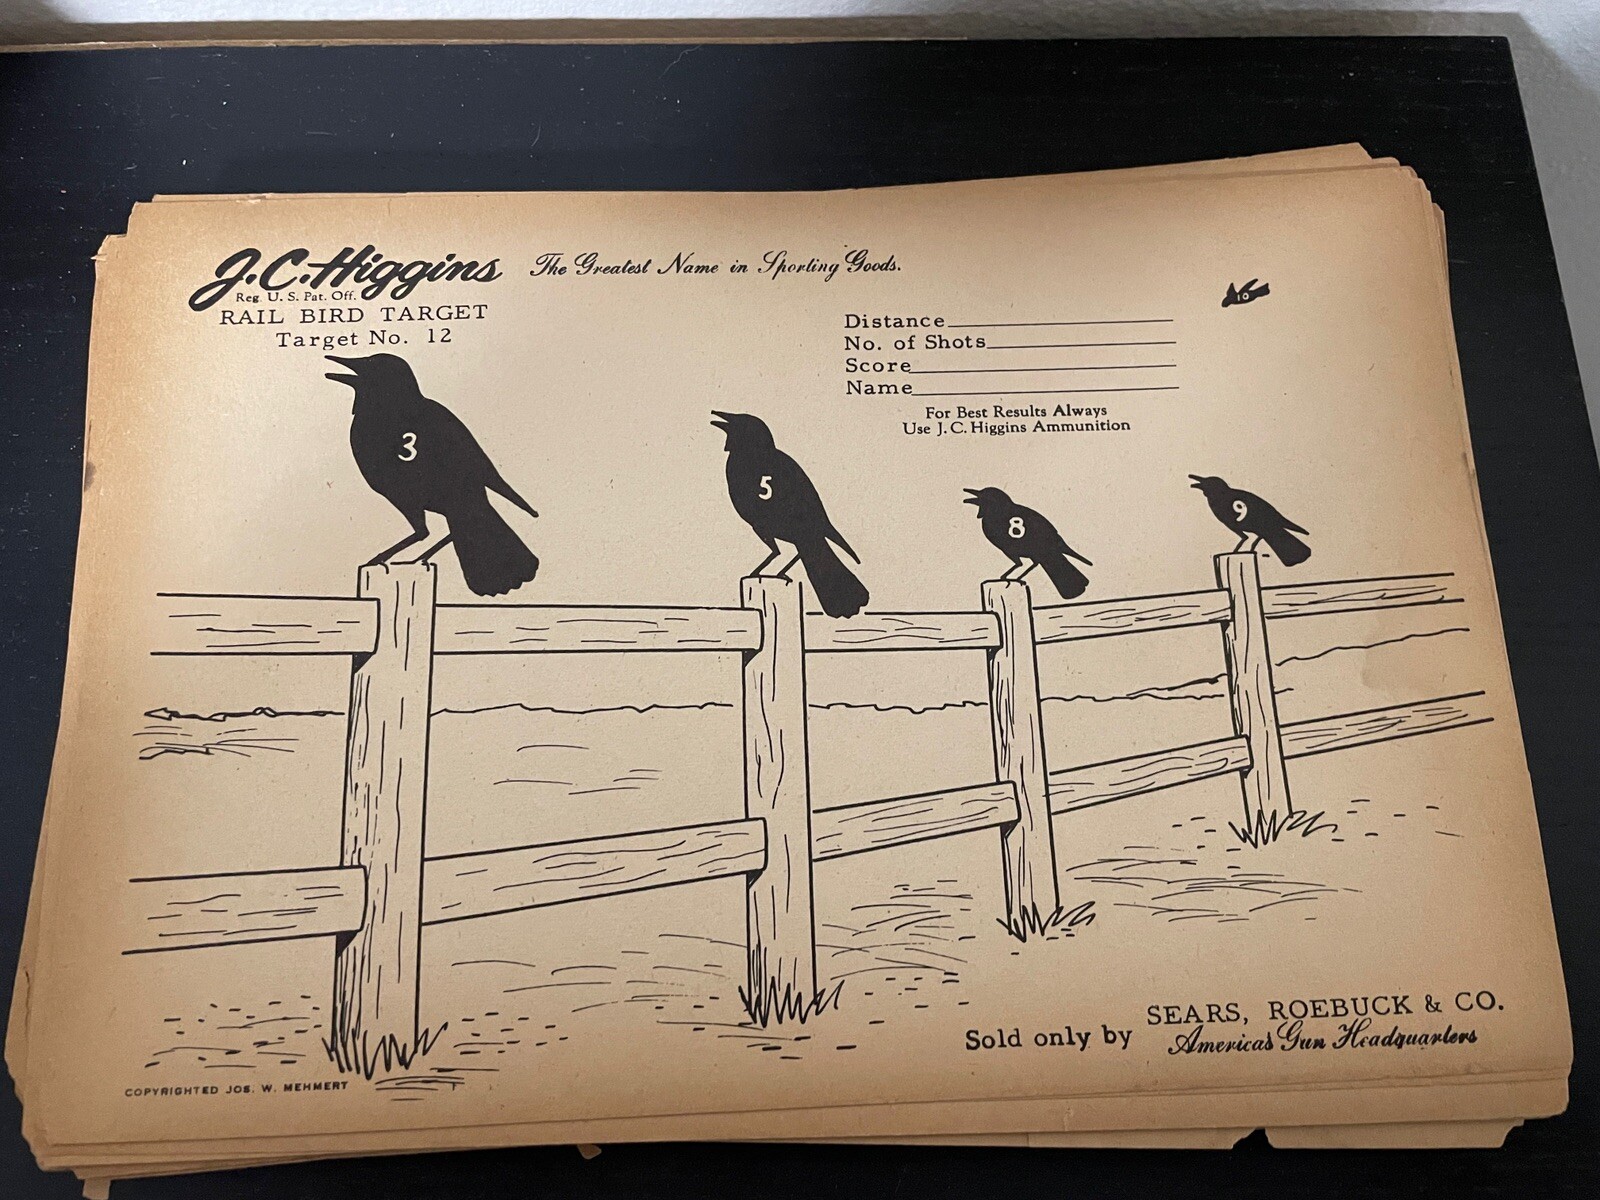 J.C. Higgins The Greatest Name in Sporting Goods.
Reg. U. S. Pat. Off.
RAIL BIRD TARGET
Target No. 12
10
Distance
No. of Shots
Score
Name
For Best Results Always
Use J. C. Higgins Ammunition
3
5
8
9
Sold only by SEARS, ROEBUCK & CO.
America's Gun Headquarters
COPYRIGHTED JOS. W. MEHMERT